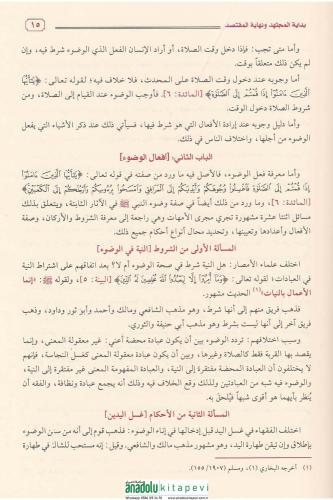 بداية المجتهد ونهاية المقتصد ١٥
وأما متى تجب: فإذا دخل وقت الصلاة، أو أراد الإنسان الفعل الذي الوضوء شرط فيه، وإن
لم يكن ذلك متعلقًا بوقت.
أما وجوبه عند دخول وقت الصلاة على المحدث، فلا خلاف فيه؛ لقوله تعالى: ﴿يَٰٓأَيُّهَا
ٱلَّذِينَ ءَامَنُوٓا۟ إِذَا قُمْتُمْ إِلَى ٱلصَّلَوٰةِ﴾ [المائدة: ٦]، فأوجب الوضوء عند القيام إلى الصلاة، ومن
شروط الصلاة دخول الوقت.
وأما دليل وجوبه عند إرادة الأفعال التي هو شرط فيها، فسيأتي ذلك عند ذكر الأشياء التي يفعل
الوضوء من أجلها، واختلاف الناس في ذلك.
الباب الثاني: [أفعال الوضوء]
وأما معرفة فعل الوضوء، فالأصل فيه ما ورد من صفته في قوله تعالى: ﴿يَٰٓأَيُّهَا
ٱلَّذِينَ ءَامَنُوٓا۟ إِذَا قُمْتُمْ إِلَى ٱلصَّلَوٰةِ فَٱغْسِلُوا۟ وُجُوهَكُمْ وَأَيْدِيَكُمْ إِلَى ٱلْمَرَافِقِ وَٱمْسَحُوا۟ بِرُءُوسِكُمْ وَأَرْجُلَكُمْ إِلَى ٱلْكَعْبَيْنِ﴾
[المائدة: ٦]، وما ورد من ذلك أيضًا في صفة وضوء النبي ﷺ في الآثار الثابتة، ويتعلق بذلك
مسائل اثنتا عشرة مشهورة تجري مجرى الأمهات وهي راجعة إلى معرفة الشروط والأركان، وصفة
الأفعال وأعدادها وتعيينها، وتحديد محال أنواع أحكام جميع ذلك.
المسألة الأولى من الشروط [النية في الوضوء]
اختلف علماء الأمصار: هل النية شرط في صحة الوضوء أم لا؟ بعد اتفاقهم على اشتراط النية
في العبادات؛ لقوله تعالى: ﴿وَمَآ أُمِرُوٓا۟ إِلَّا لِيَعْبُدُوا۟ ٱللَّهَ مُخْلِصِينَ لَهُ ٱلدِّينَ﴾ [البينة: ٥]، ولقوله ﷺ: «إنما
الأعمال بالنيات»(١) الحديث مشهور.
فذهب فريق منهم إلى أنها شرط، وهو مذهب الشافعي ومالك وأحمد وأبو ثور وداود، وذهب
فريق آخر إلى أنها ليست بشرط وهو مذهب أبي حنيفة والثوري.
وسبب اختلافهم: تردد الوضوء بين أن يكون عبادة محضة أعني: غير معقولة المعنى، وإنما
يقصد بها القربة فقط كالصلاة وغيرها، وبين أن يكون عبادة معقولة المعنى كغسل النجاسة، فإنهم
لا يختلفون أن العبادة المحضة مفتقرة إلى النية، والعبادة المفهومة المعنى غير مفتقرة إلى النية،
والوضوء فيه شبه من العبادتين ولذلك وقع الخلاف فيه وذلك أنه يجمع عبادة ونظافة، والفقه أن
يُنظر بأيهما هو أقوى شبهًا فيُلحق به.
المسألة الثانية من الأحكام [غسل اليدين]
اختلف الفقهاء في غسل اليد قبل إدخالها في إناء الوضوء: فذهب قوم إلى أنه من سنن الوضوء
بإطلاق وإن تيقن طهارة اليد، وهو مشهور مذهب مالك والشافعي، وقيل: إنه مستحب للشاك في طهارة
(١) أخرجه البخاري (١)، ومسلم (١٩٠٧/ ١٥٥).
anadolukitapevi